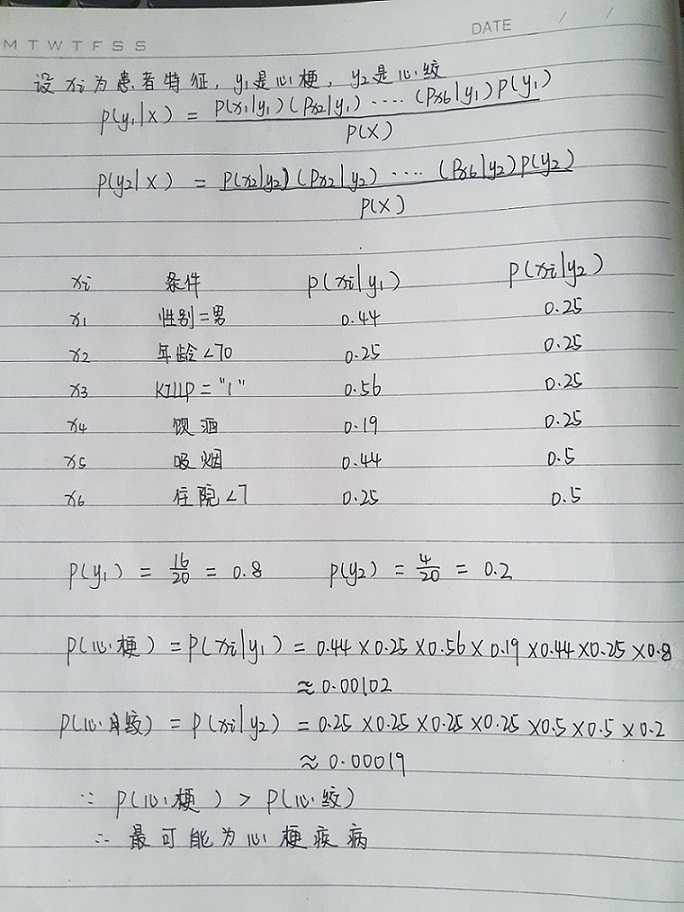 DATE / /
M T W T F S S
设 xi 为患者特征, y1是心梗, y2是心绞
P(y1|X) = P(x1|y1)(Px2|y1)····(Px6|y1)P(y1)
P(X)
P(y2|X) = P(x2|y2)(Px2|y2)····(Px6|y2)P(y2)
P(X)
xi 条件 P(xi|y1) P(xi|y2)
x1 性别=男 0.44 0.25
x2 年龄<70 0.25 0.25
x3 KILLP="1" 0.56 0.25
x4 饮酒 0.19 0.25
x5 吸烟 0.44 0.5
x6 住院<7 0.25 0.5
P(y1) = 16/20 = 0.8 P(y2) = 4/20 = 0.2
P(心梗) = P(xi|y1) = 0.44×0.25×0.56×0.19×0.44×0.25×0.8
≈0.00102
P(心绞) = P(xi|y2) = 0.25×0.25×0.25×0.25×0.5×0.5×0.2
≈0.00019
∵ P(心梗) > P(心绞)
∴ 最可能为心梗疾病